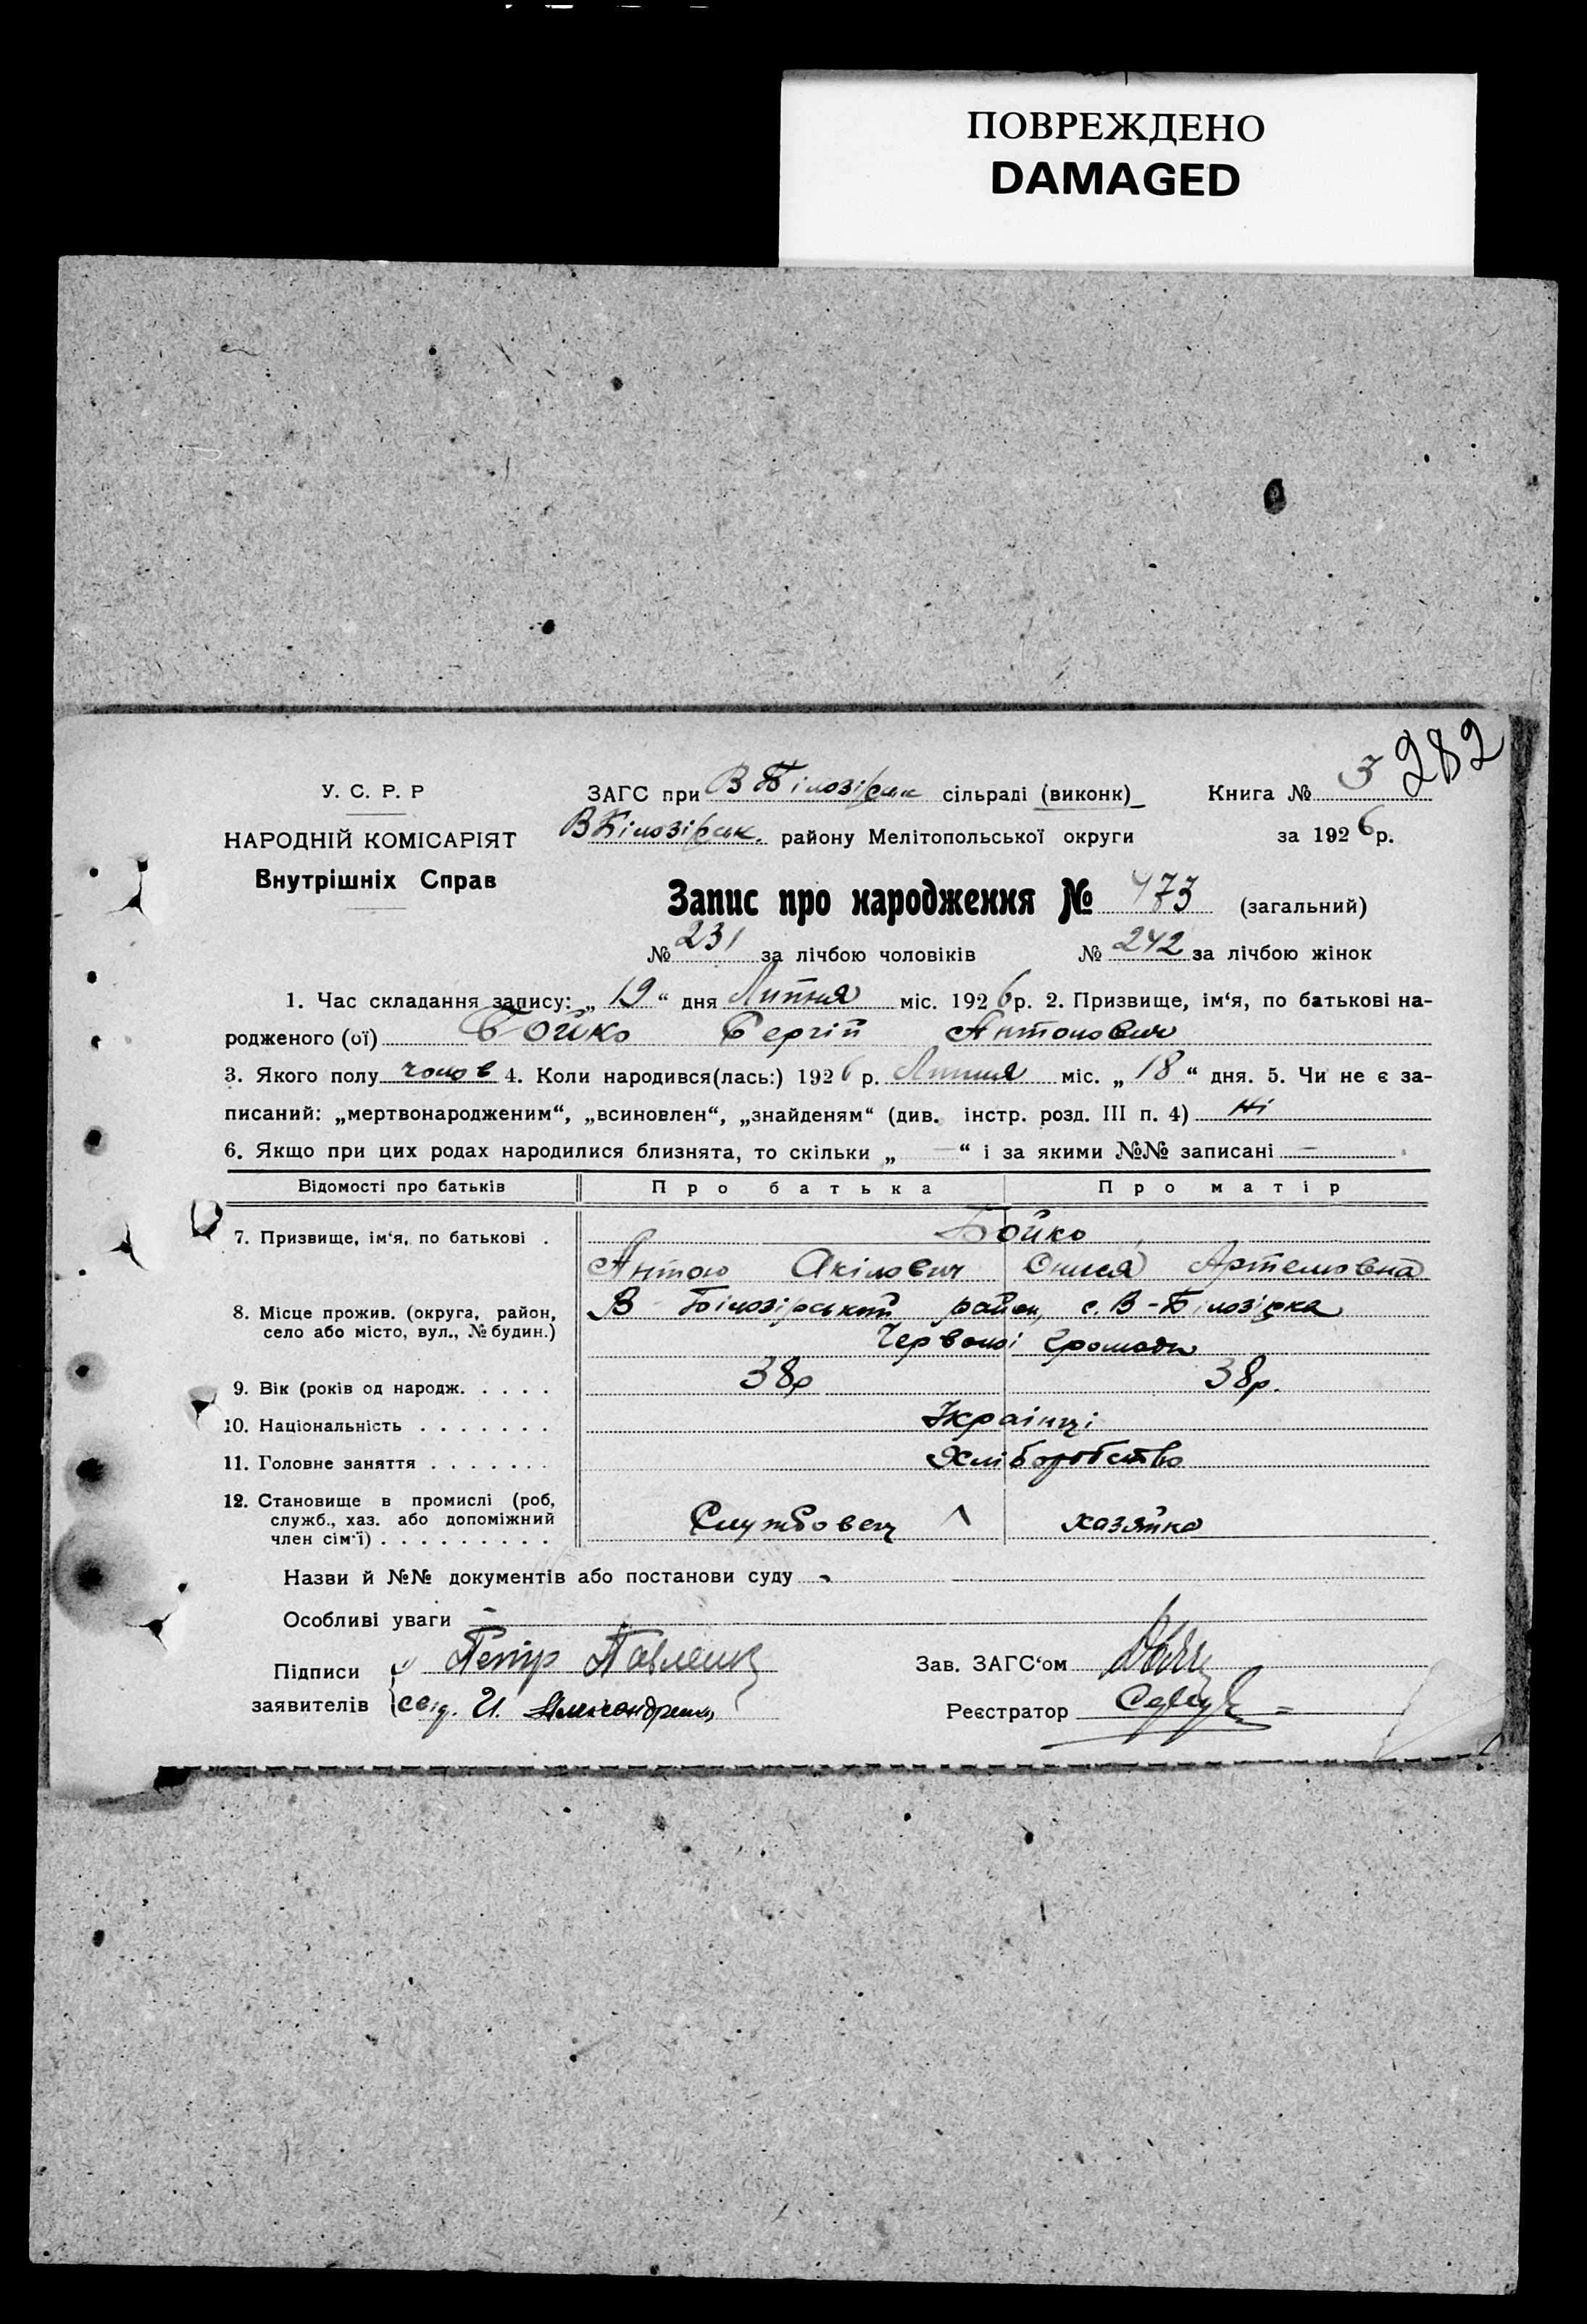 ПОВРЕЖДЕНО
DAMAGED
282
У. С. Р. Р
ЗАГС при В Білозірськ сільраді (виконк) Книга № 3
НАРОДНІЙ КОМІСАРІЯТ
В Білозірськ. району Мелітопольської округи за 1926 р.
Внутрішніх Справ
Запис про народження № 473 (загальний)
№ 231 за лічбою чоловіків № 242 за лічбою жінок
1. Час складання запису: „ 19 “ дня Липня міс. 1926 р. 2. Призвище, ім‘я, по батькові на-
родженого (ої) Бойко Сергій Антонович
3. Якого полу чолов 4. Коли народився(лась:) 1926 р. Липня міс. „ 18 “ дня. 5. Чи не є за-
писаний: „мертвонародженим“, „всиновлен“, „знайденям“ (див. інстр. розд. III п. 4) ні
6. Якщо при цих родах народилися близнята, то скільки „ — “ і за якими №№ записані —
Відомості про батьків Про батька Про матір
7. Призвище, ім‘я, по батькові . Бойко
Антон Акілович Онися Артемовна
8. Місце прожив. (округа, район, В-Білозірський район, с. В-Білозірка
село або місто, вул., № будин.) Червоної Громади
9. Вік (років од народж. . . . . 38р 38р.
10. Національність . . . . . . . Українці
11. Головне заняття . . . . . . . Хліборобство
12. Становище в промислі (роб,
служб., хаз. або допоміжний Службовец хазяйка
член сім‘ї) . . . . . . . . .
Назви й №№ документів або постанови суду -
Особливі уваги -
Підписи Петр Павленко Зав. ЗАГС‘ом
заявителів свід. И. Реєстратор